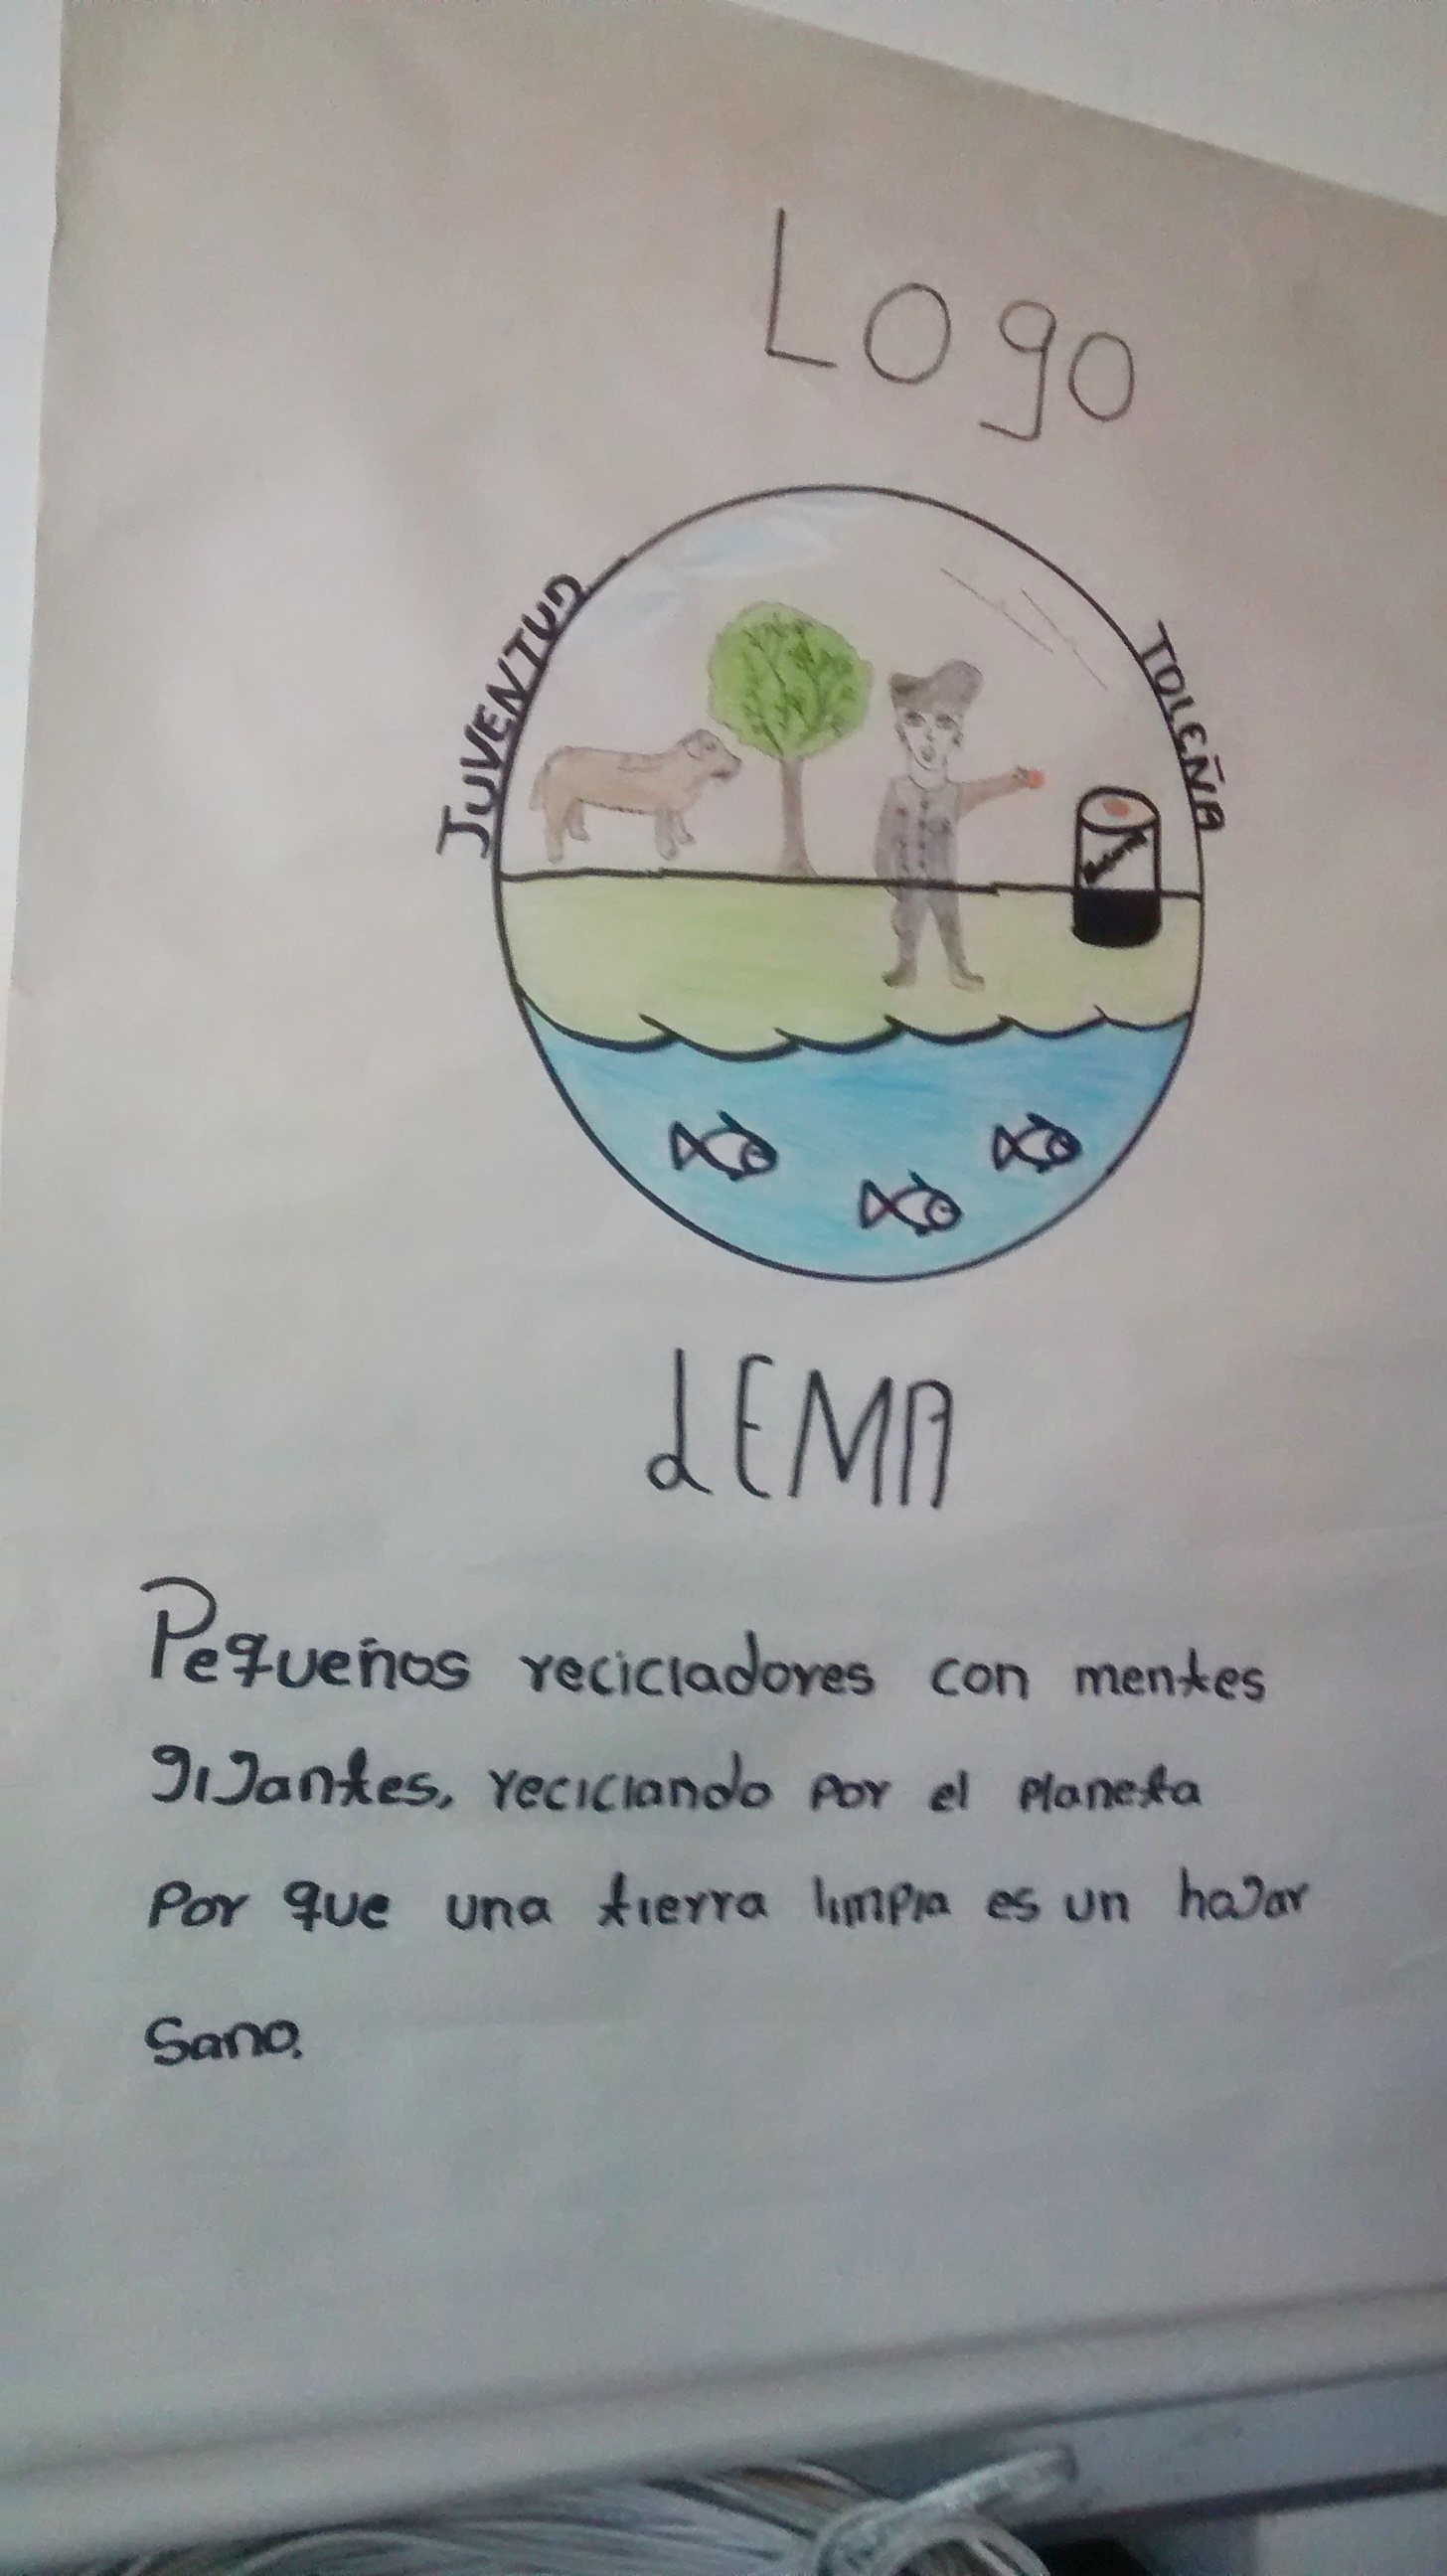 Logo
JUVENTUD
TOLEÑA
LEMA
Pequeños recicladores con mentes
gigantes, reciclando por el planeta
Por que una tierra limpia es un hogar
Sano.